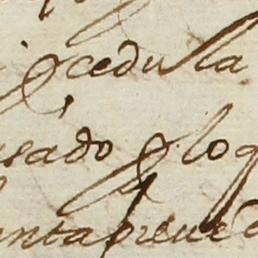 y cedula
sado y loq
ntapreue